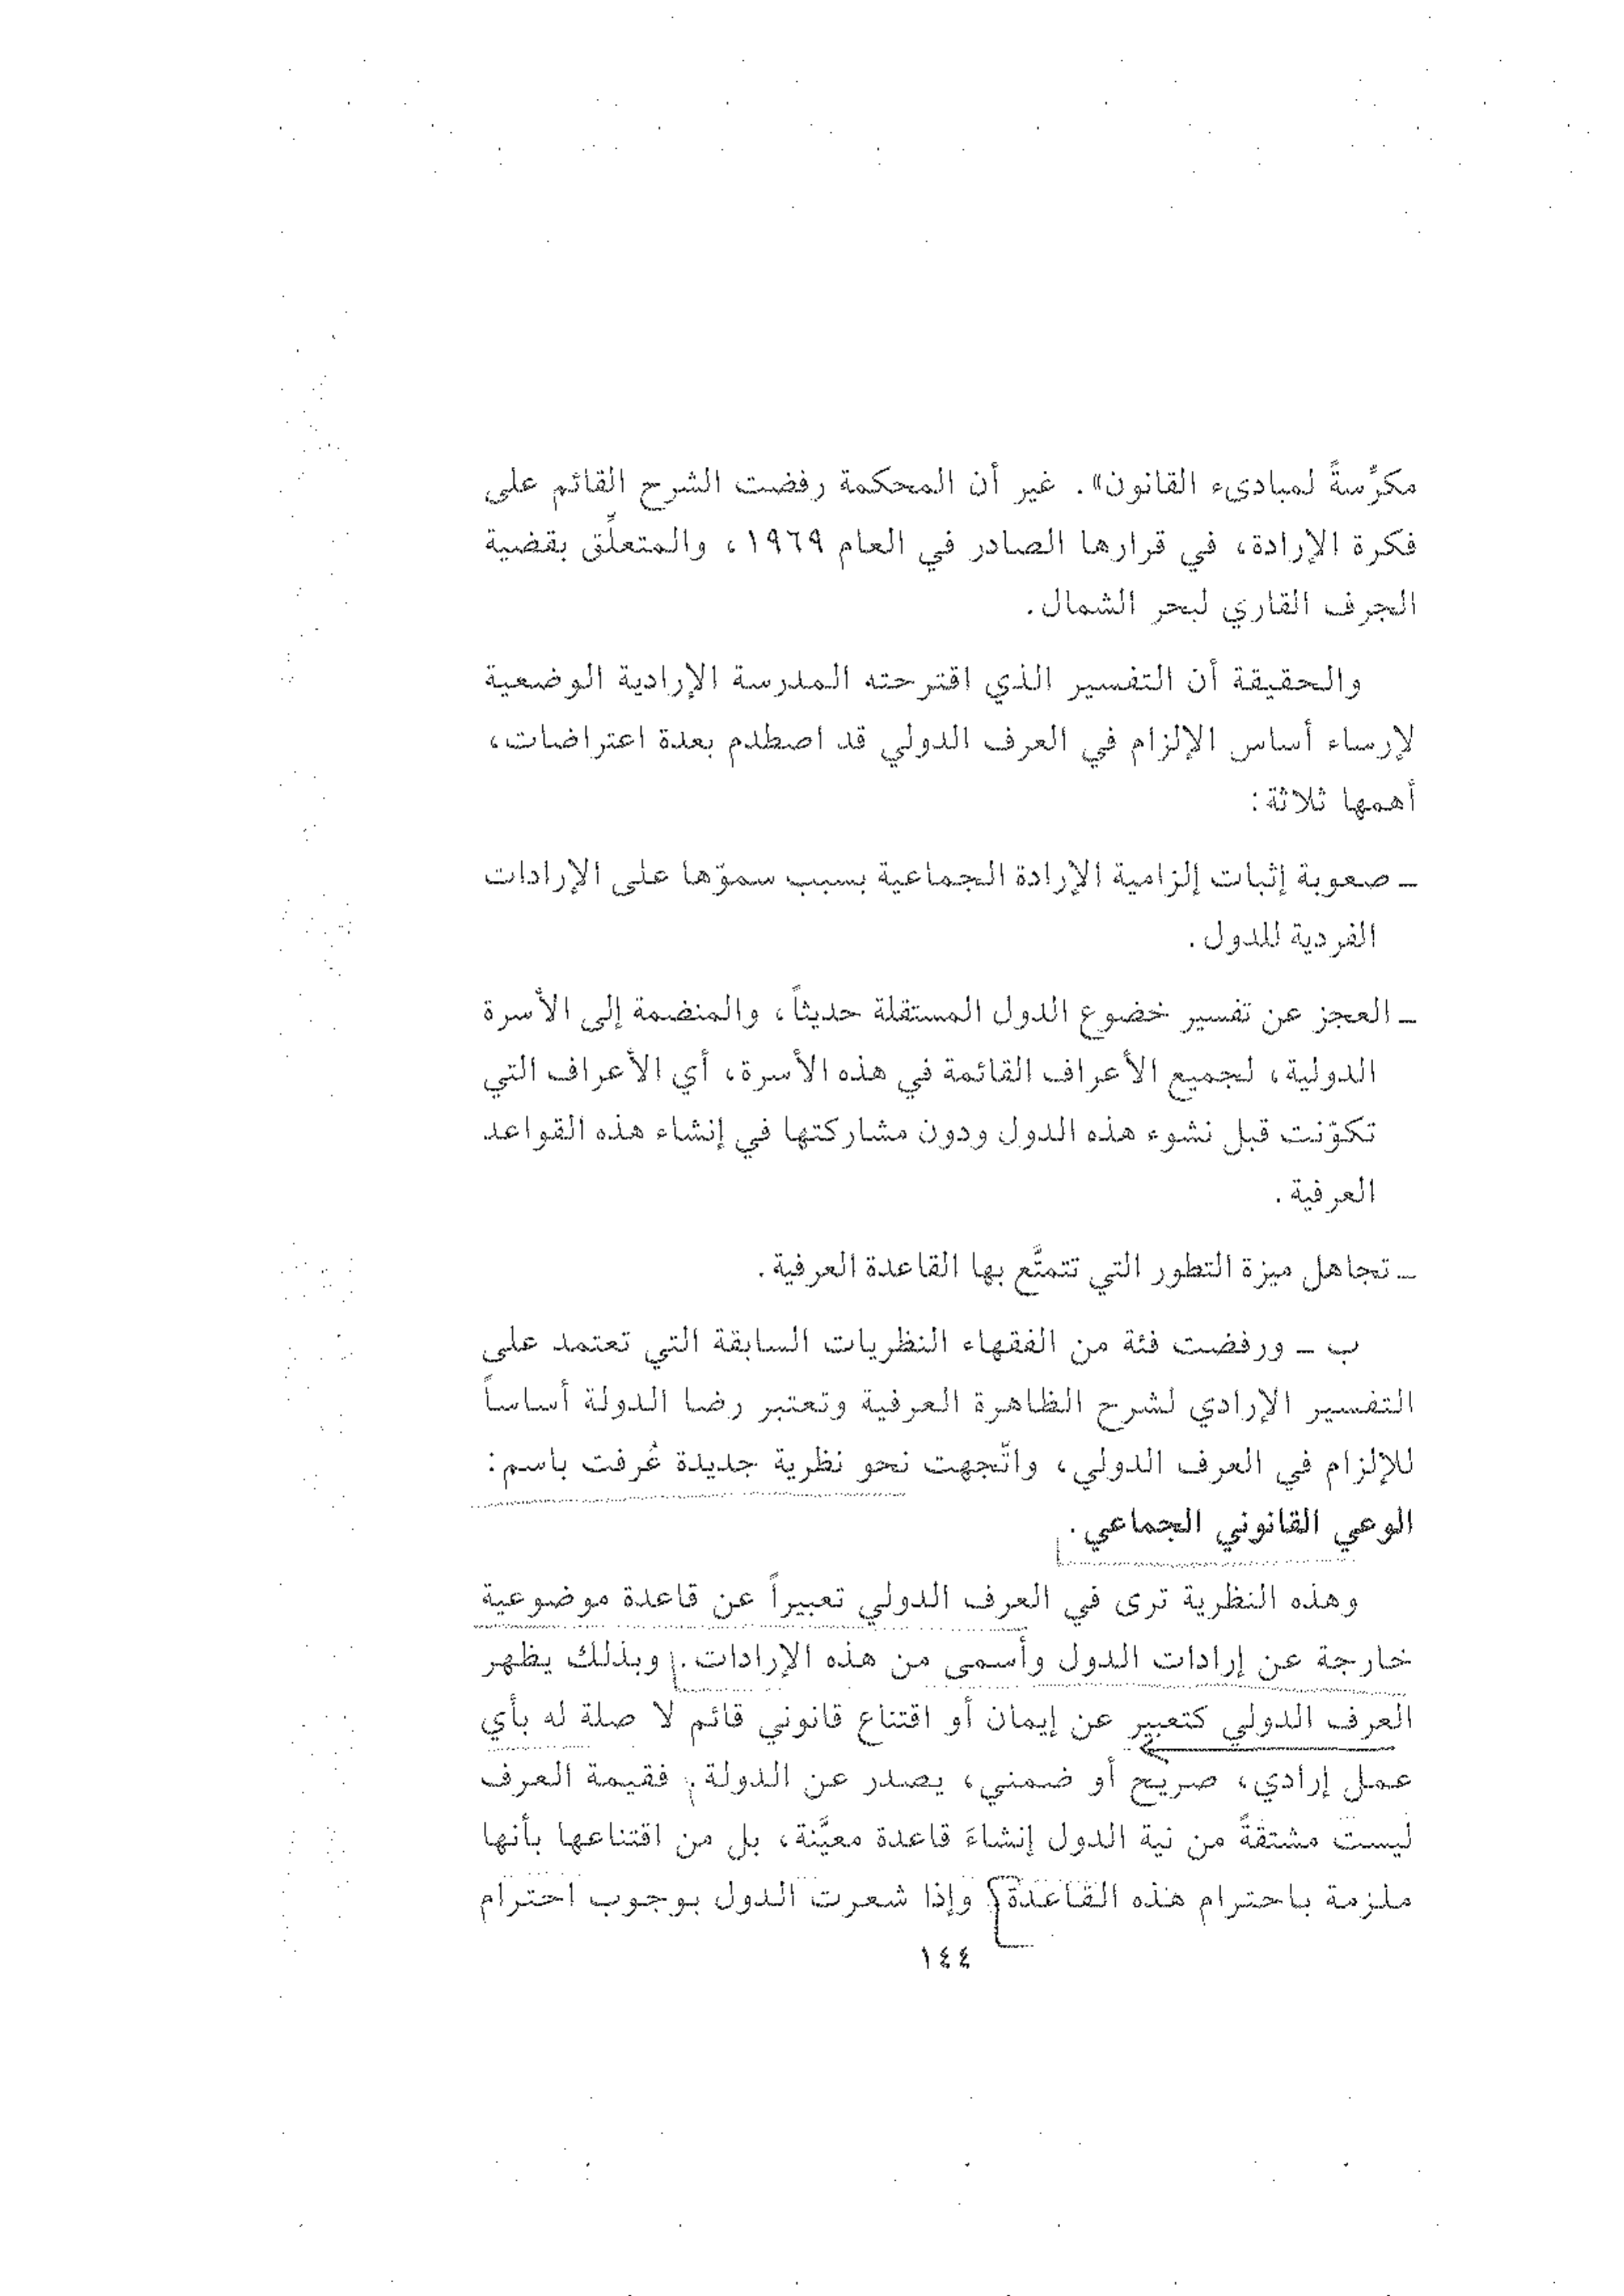 مكرِّسةً لمبادىء القانون». غير أن المحكمة رفضت الشرح القائم على
فكرة الإرادة، في قرارها الصادر في العام ١٩٦٩، والمتعلِّق بقضية
الجرف القاري لبحر الشمال.
والحقيقة أن التفسير الذي اقترحته المدرسة الإرادية الوضعية
لإرساء أساس الإلزام في العرف الدولي قد اصطدم بعدة اعتراضات،
أهمها ثلاثة:
ـ صعوبة إثبات إلزامية الإرادة الجماعية بسبب سموّها على الإرادات
الفردية للدول.
ـ العجز عن تفسير خضوع الدول المستقلة حديثاً، والمنضمة إلى الأسرة
الدولية، لجميع الأعراف القائمة في هذه الأسرة، أي الأعراف التي
تكوّنت قبل نشوء هذه الدول ودون مشاركتها في إنشاء هذه القواعد
العرفية.
ـ تجاهل ميزة التطور التي تتمتَّع بها القاعدة العرفية.
ب ـ ورفضت فئة من الفقهاء النظريات السابقة التي تعتمد على
التفسير الإرادي لشرح الظاهرة العرفية وتعتبر رضا الدولة أساساً
للإلزام في العرف الدولي، واتّجهت نحو نظرية جديدة عُرفت باسم:
الوعي القانوني الجماعي.
وهذه النظرية ترى في العرف الدولي تعبيراً عن قاعدة موضوعية
خارجة عن إرادات الدول وأسمى من هذه الإرادات. وبذلك يظهر
العرف الدولي كتعبير عن إيمان أو اقتناع قانوني قائم لا صلة له بأي
عمل إرادي، صريح أو ضمني، يصدر عن الدولة. فقيمة العرف
ليست مشتقةً من نية الدول إنشاءَ قاعدة معيَّنة، بل من اقتناعها بأنها
ملزمة باحترام هذه القاعدة؟ وإذا شعرت الدول بوجوب احترام
١٤٤